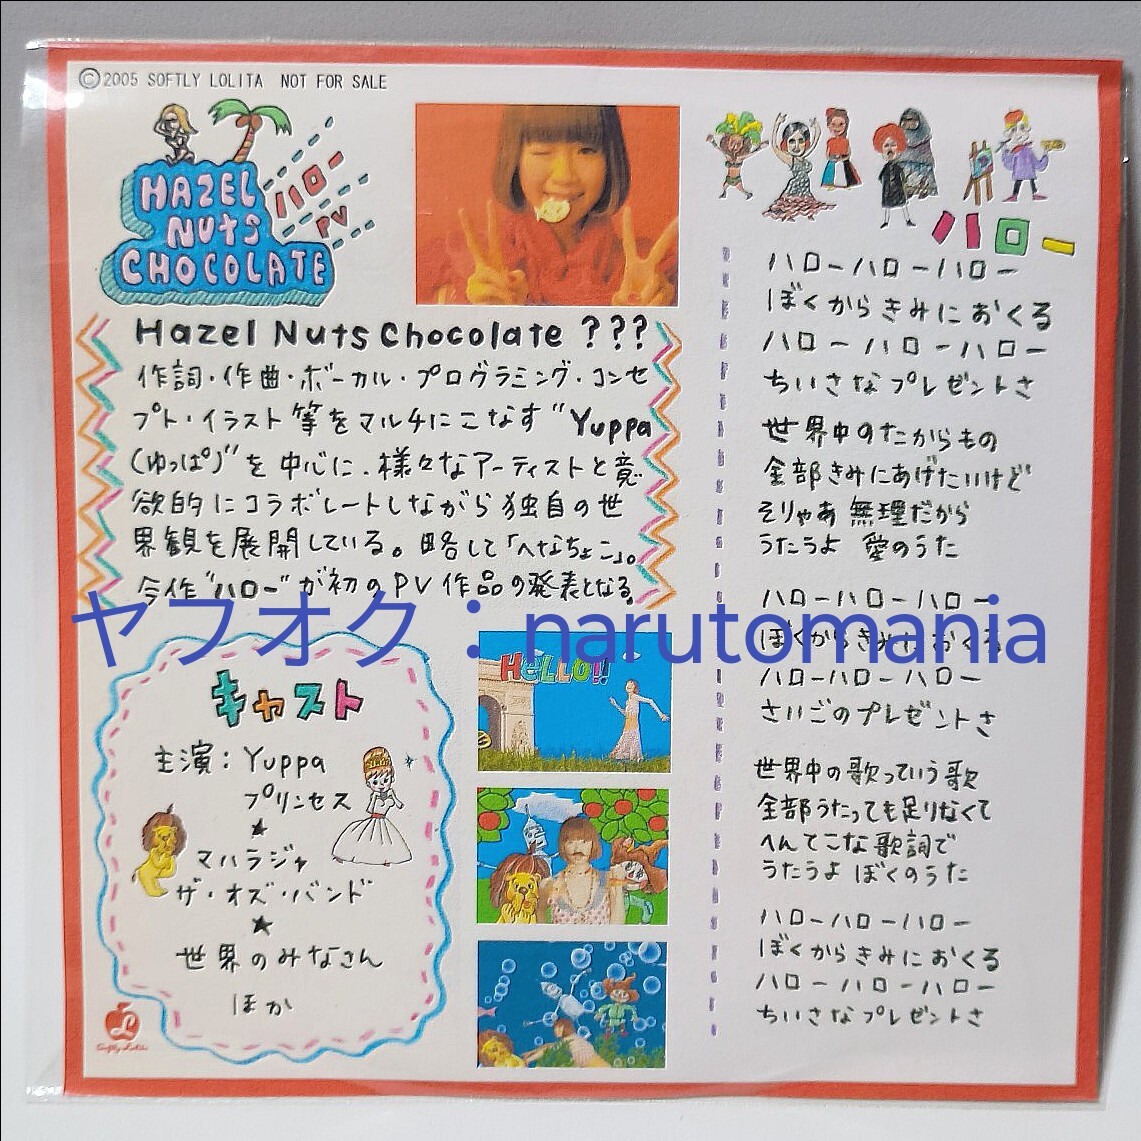 ©2005 SOFTLY LOLITA NOT FOR SALE
HAZEL
NUTS
CHOCOLATE
ハロー
PV
Hazel Nuts Chocolate ???
作詞・作曲・ボーカル・プログラミング・コンセ
プト・イラスト等をマルチにこなす"Yuppa
(ゆっぱ)"を中心に、様々なアーティストと意
欲的にコラボレートしながら独自の世
界観を展開している。略して「へなちょこ」。
今作"ハロー"が初のPV作品の発表となる。
ヤフオク： narutomania
キャスト
主演：Yuppa
プリンセス
★
マハラジャ
ザ・オズ・バンド
★
世界のみなさん
ほか
Softly Lolita
HELLO!!
ハロー
ハローハローハロー
ぼくからきみにおくる
ハローハローハロー
ちいさなプレゼントさ
世界中のたからもの
全部きみにあげたいけど
そりゃあ無理だから
うたうよ 愛のうた
ハローハローハロー
ぼくからきみにおくる
ハローハローハロー
さいごのプレゼントさ
世界中の歌っていう歌
全部うたっても足りなくて
へんてこな歌詞で
うたうよ ぼくのうた
ハローハローハロー
ぼくからきみにおくる
ハローハローハロー
ちいさなプレゼントさ